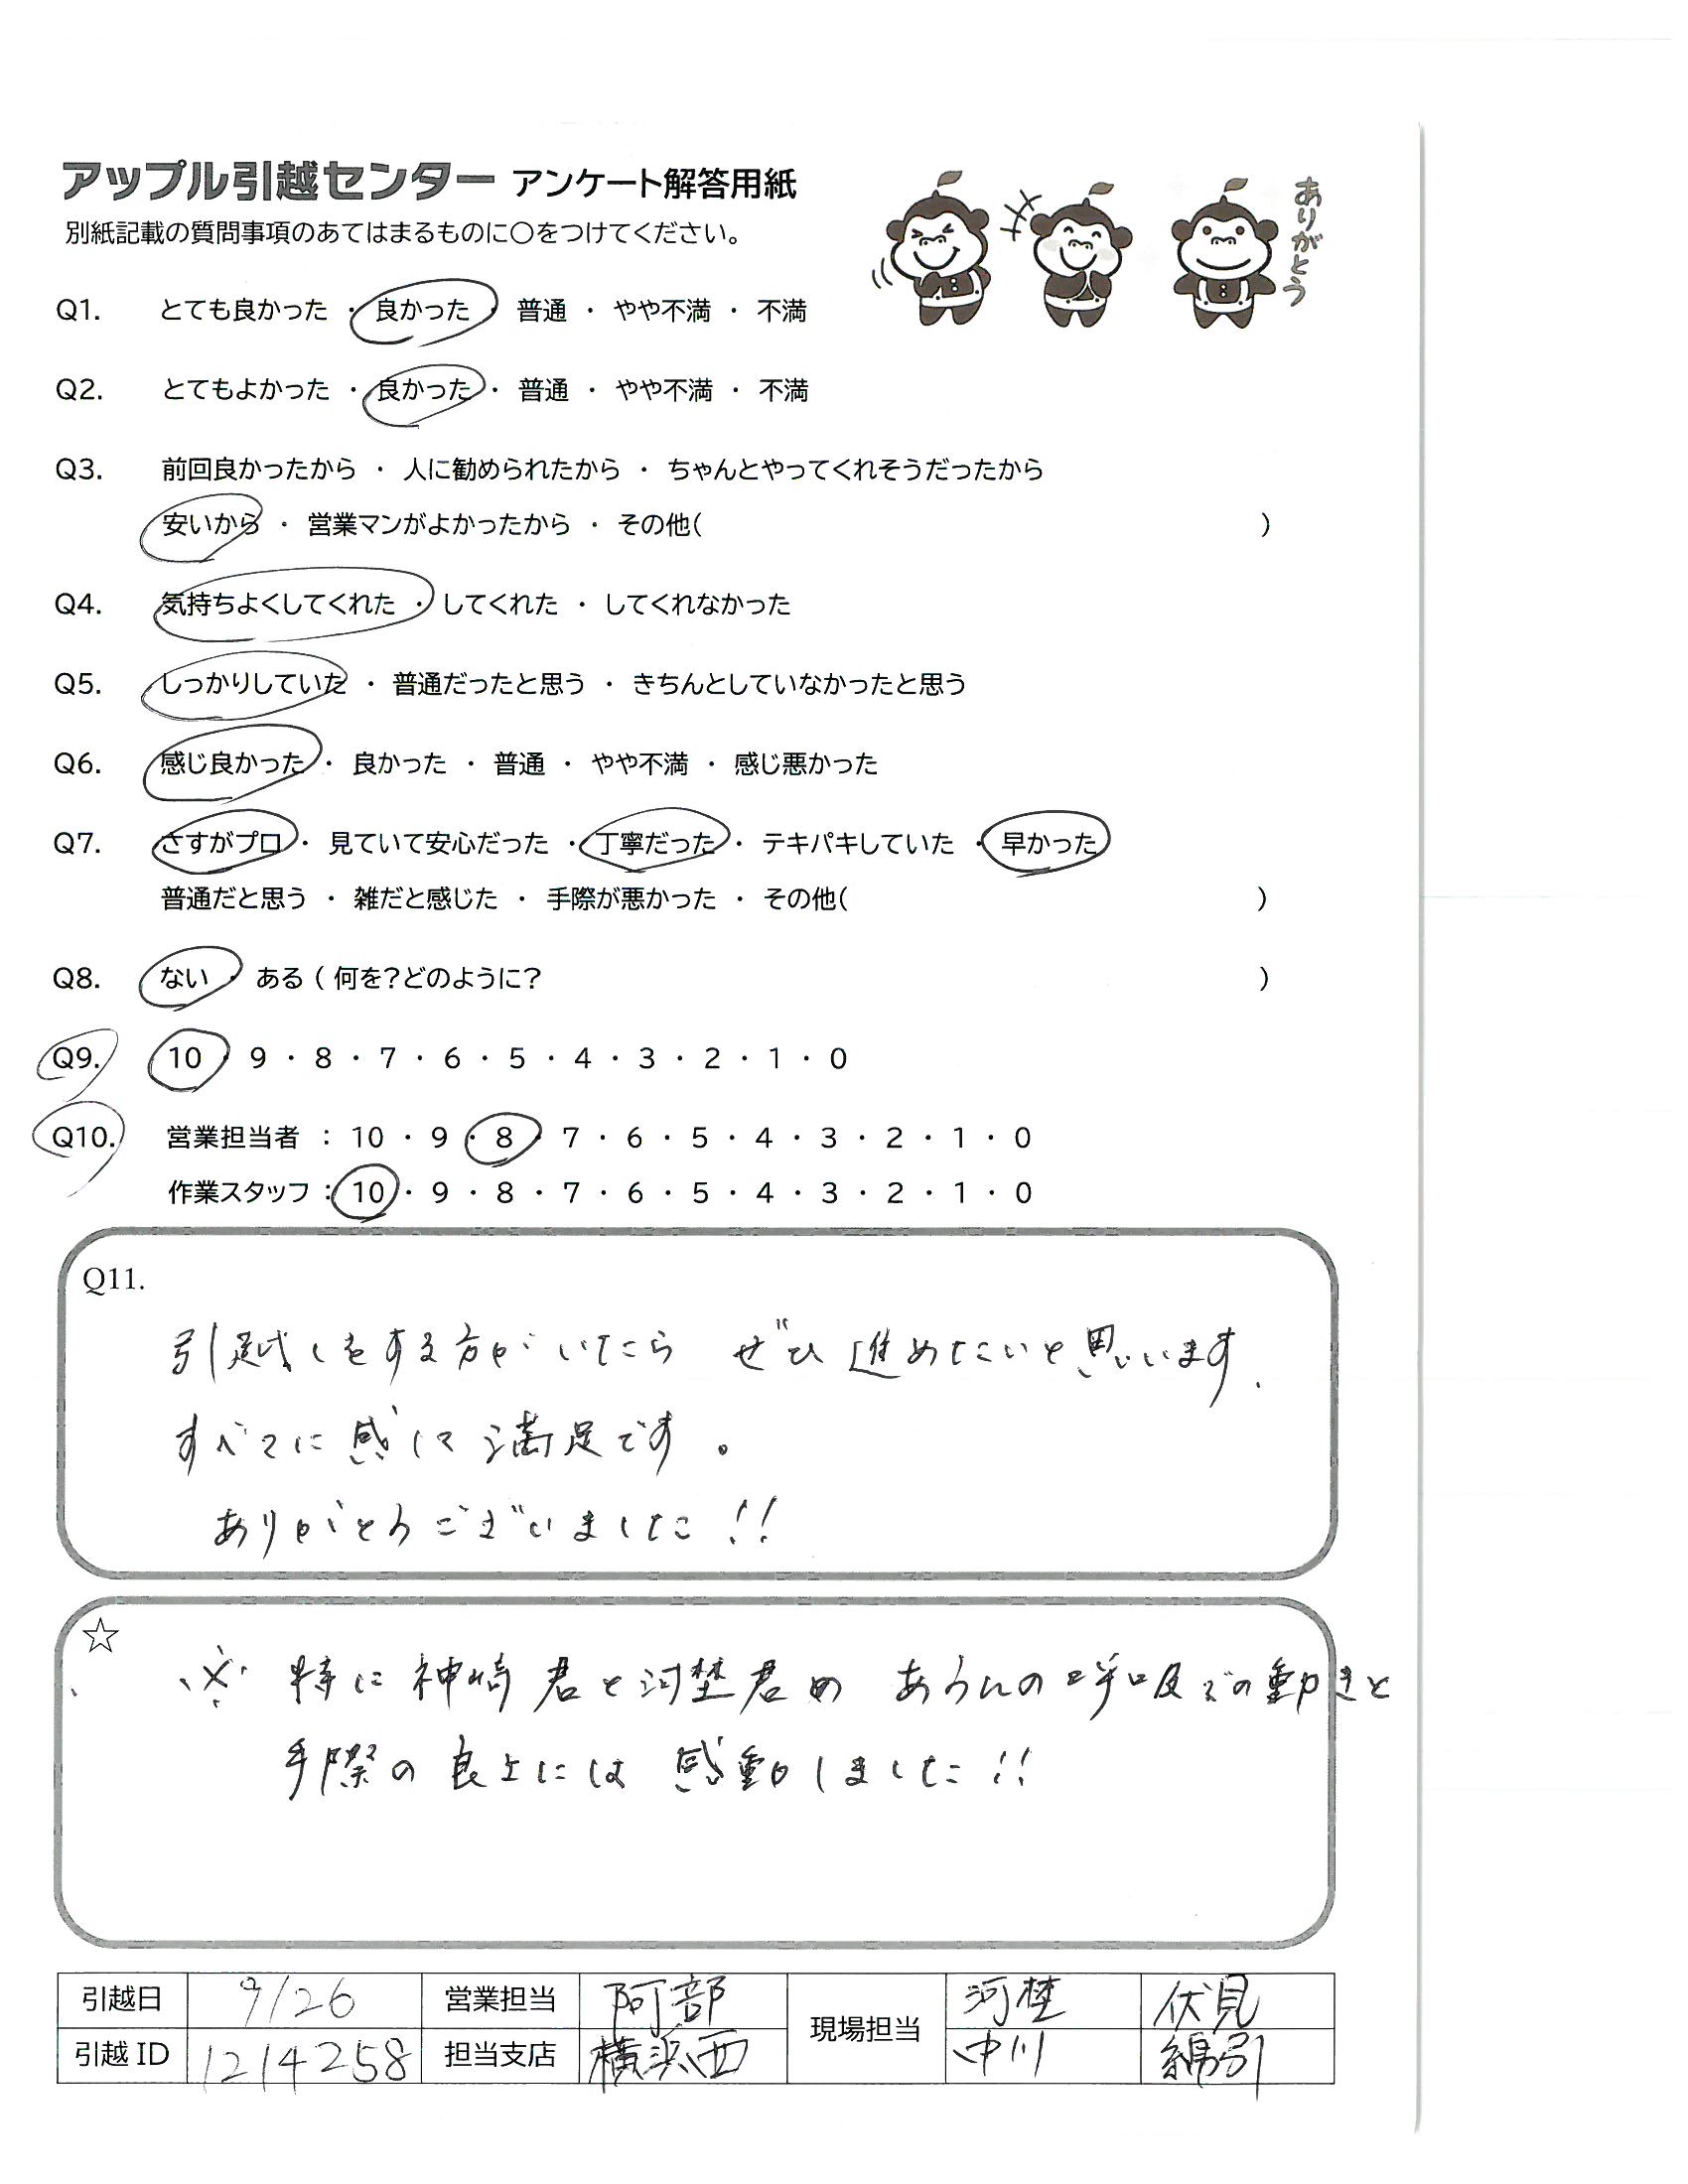 アップル引越センター アンケート解答用紙
別紙記載の質問事項のあてはまるものに○をつけてください。
ありがとう
Q1. とても良かった ・ 良かった ・ 普通 ・ やや不満 ・ 不満
Q2. とてもよかった ・ 良かった ・ 普通 ・ やや不満 ・ 不満
Q3. 前回良かったから ・ 人に勧められたから ・ ちゃんとやってくれそうだったから
安いから ・ 営業マンがよかったから ・ その他( )
Q4. 気持ちよくしてくれた ・ してくれた ・ してくれなかった
Q5. しっかりしていた ・ 普通だったと思う ・ きちんとしていなかったと思う
Q6. 感じ良かった ・ 良かった ・ 普通 ・ やや不満 ・ 感じ悪かった
Q7. さすがプロ ・ 見ていて安心だった ・ 丁寧だった ・ テキパキしていた ・ 早かった
普通だと思う ・ 雑だと感じた ・ 手際が悪かった ・ その他( )
Q8. ない ・ ある ( 何を?どのように? )
Q9. 10 ・ 9 ・ 8 ・ 7 ・ 6 ・ 5 ・ 4 ・ 3 ・ 2 ・ 1 ・ 0
Q10. 営業担当者 : 10 ・ 9 ・ 8 ・ 7 ・ 6 ・ 5 ・ 4 ・ 3 ・ 2 ・ 1 ・ 0
作業スタッフ : 10 ・ 9 ・ 8 ・ 7 ・ 6 ・ 5 ・ 4 ・ 3 ・ 2 ・ 1 ・ 0
Q11.
引越しをする方が いたら ぜひ 進めたいと思います.
すべてに 感して 満足です。
ありがとうございました!!
☆
※ 特に 神崎君と河埜君の あうんの呼吸での動きと
手際の良さには 感動しました!!
引越日 9/26 営業担当 阿部 現場担当 河埜 伏見
引越ID 1214258 担当支店 横浜西 中川 綿引